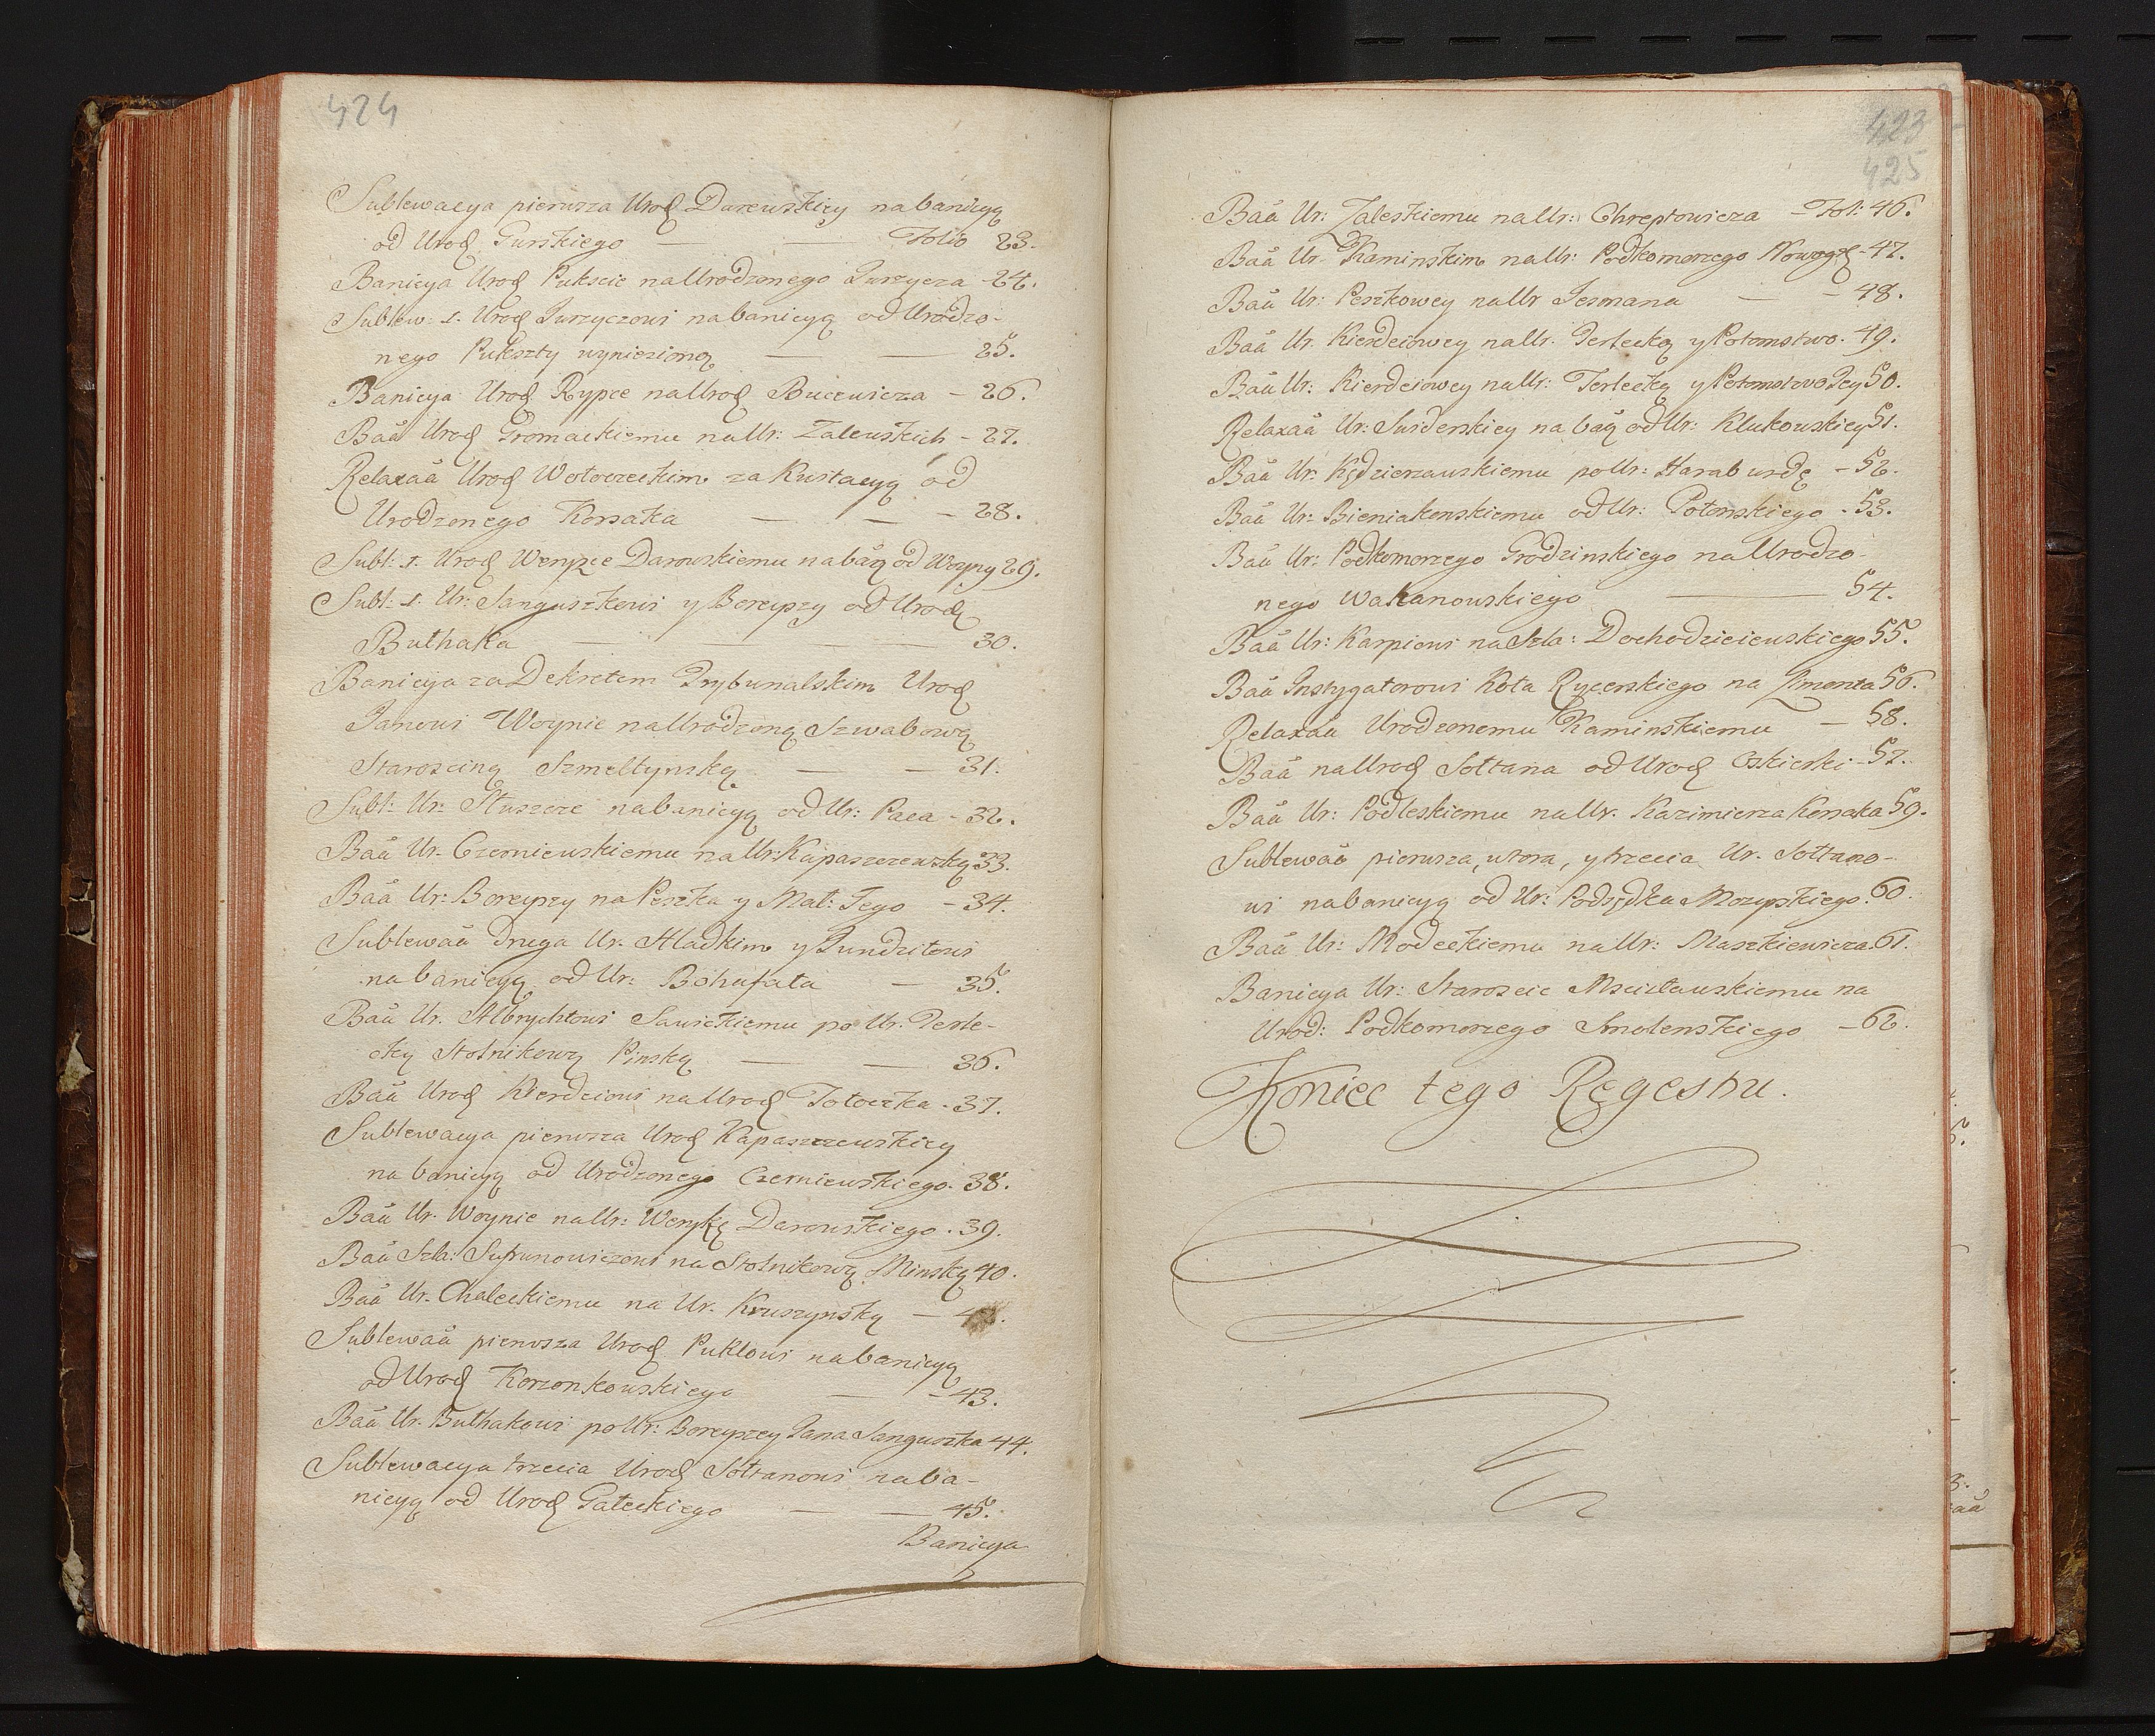 424
Sublewacya pierwsza Urod Darewskiey na banicyą
od Urod Gurskiego — — Folio 23.
Banicya Urod Pukscie na Urodzonego Jurzycza - 24.
Sublew: 1. Urod Jurzyczowi na banicyą od Urodzo-
nego Pukszty wyniesioną — — 25.
Banicya Urod Rypce na Urod Bucewicza - 26.
Baä Urod Gromackiemu na Ur: Zalewskich - 27.
Relaxaä Urod Wołoczeckim za Kustacyą od
Urodzonego Korsaka — — - 28.
Subl: 1. Urod Weryzce Darowskiemu na bäą od Woyny 29.
Subl: 1. Ur: Sanguszkowi y Boreyszy od Urod
Bułhaka — — — 30.
Banicya za Dekretem Trybunalskim Urod
Janowi Woynie na Urodzoną Szwabową
Staroscinę Szmeltynską — — 31.
Subl: Ur: Słuszcze na banicyą od Ur: Paca - 32.
Baä Ur. Czerniewskiemu na Ur: Kapaszczewską 33.
Baä Ur: Boreyszy na Peszka y Mał: Jego - 34.
Sublewaä druga Ur. Hladkim y Pundzitowi
na banicyą od Ur: Bohufała — 35.
Baä Ur. Albrychtowi Sawickiemu po Ur. Terle-
cką Stolnikową Pinską — — 36.
Baä Urod Kierdeiowi na Urod Tołoczka - 37.
Sublewacya pierwsza Urod Kapaszczewskiey
na banicyą od Urodzonego Czerniewskiego. 38.
Baä Ur. Woynie na Ur: Weryhę Darowskiego. 39.
Baä Szla: Suprunowiczowi na Stolnikową Minską 40.
Baä Ur. Chaleckiemu na Ur. Kruszynską —
Sublewaä pierwsza Urod Pukłowi na banicyą
od Urod Korzonkowskiego — - 43.
Baä Ur. Bułhakowi po Ur: Boreyszey Jana Sanguszka 44.
Sublewacya trzecia Urod Sołtanowi na ba-
nicyą od Urod Gałeckiego — — 45.
Banicya
423
425
Baä Ur: Zaleskiemu na Ur: Chreptowicza - Fol: 46.
Baä Ur. Kaminskim na Ur: Podkomorzego Nowogd - 47.
Baä Ur: Peszkowey na Ur Jesmana — - 48.
Baä Ur. Kierdeiowey na Ur. Terlecką y Potomstwo. 49.
Baä Ur: Kierdeiowey na Ur: Terlecką y Potomstwo Jey 50.
Relaxaä Ur: Swiderskiey na bäą od Ur: Klukowskiey 51.
Baä Ur: Kędzierzawskiemu po Ur: Haraburdę - 52.
Baä Ur: Bieniakonskiemu od Ur: Połonskiego - 53.
Baä Ur: Podkomorzego Grodzinskiego na Urodzo-
nego Wakanowskiego — 54.
Baä Ur: Karpiowi na Szla: Dochodzieiewskiego 55.
Baä Instygatorowi Koła Rycerskiego na Zimonta 56.
Relaxaä Urodzonemu Kaminskiemu — 58.
Baä na Urod Sołtana od Urod Oskierki - 57.
Baä Ur: Podleskiemu na Ur. Kazimierza Korsaka 59.
Sublewaä pierwsza, wtora, y trzecia Ur. Sołtano-
wi na banicyą od Ur: Podsędka Mozyrskiego. 60.
Baä Ur: Modeckiemu na Ur: Maszkiewicza. 61.
Banicya Ur: Staroscie Mscisławskiemu na
Urod: Podkomorzego Smolenskiego - 62.
Koniec tego Regestru.